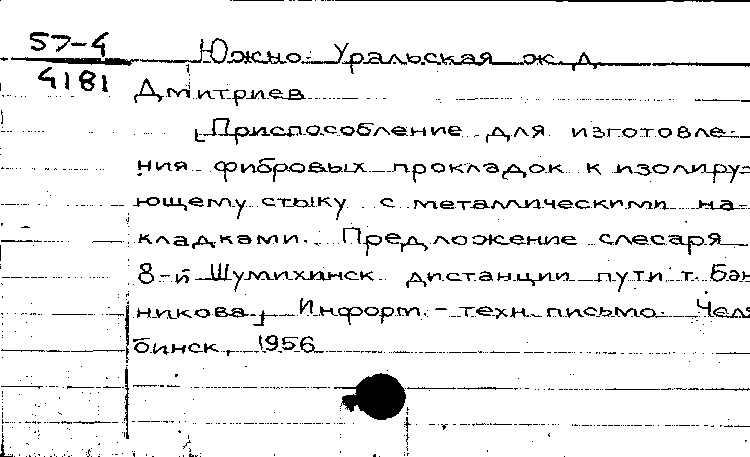 57-4
4181
Южно-Уральская ж.д.
Дмитриев
[Приспособление для изготовле-
ния фибровых прокладок к изолиру-
ющему стыку с металлическими на-
кладками. Предложение слесаря
8-й Шумихинск. дистанции пути т. Бан
никова] Информ.-техн. письмо. Челя
бинск, 1956